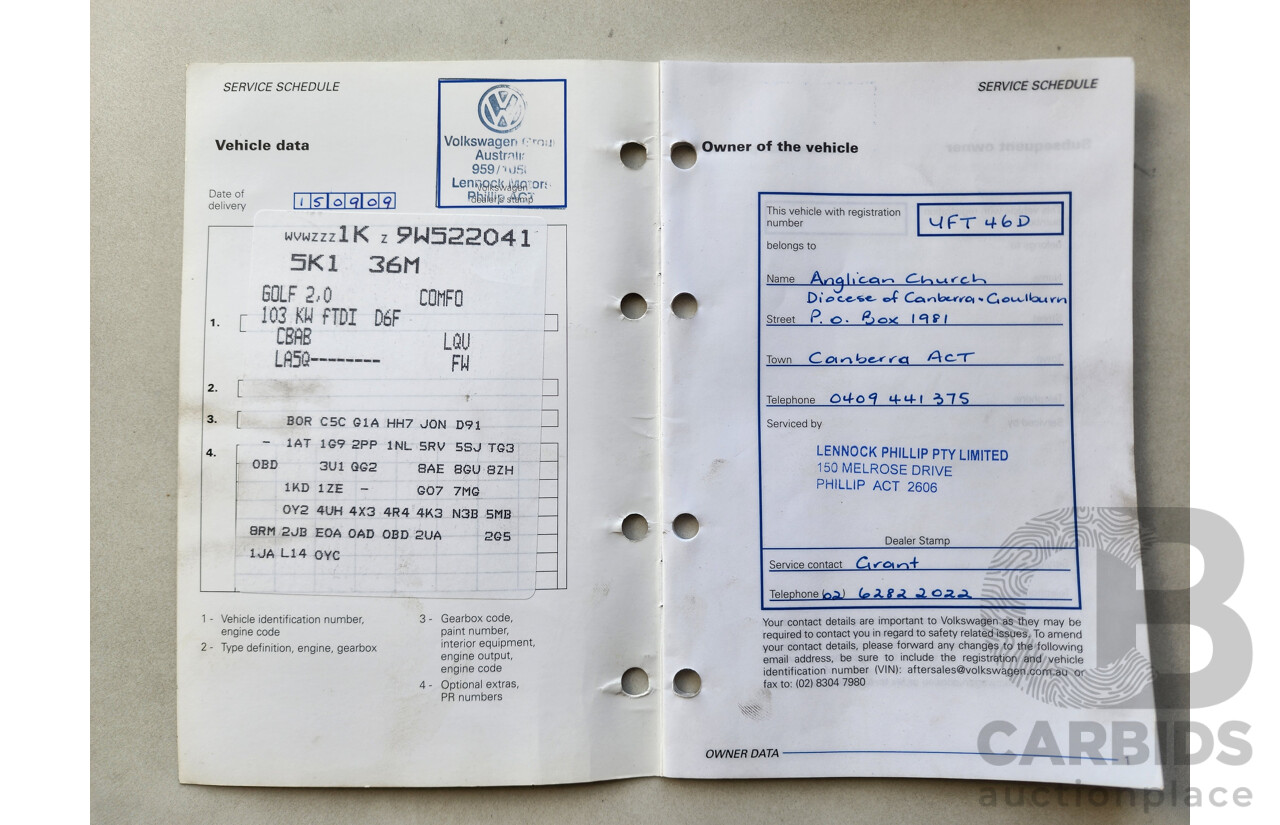 SERVICE SCHEDULE
Vehicle data
Volkswagen Group
Australia
959/
Lennock Motors
Phillip ACT
Volkswagen
dealer's stamp
Date of
delivery
150909
WVWZZZ1K Z 9W522041
5K1 36M
GOLF 2,0 COMFO
103 KW fTDI D6F
CBAB LQU
LA5Q-------- FW
1.
2.
3.
BOR C5C G1A HH7 JON D91
4.
- 1AT 1G9 2PP 1NL 5RV 5SJ TG3
OBD 3U1 GG2 8AE 8GU 8ZH
1KD 1ZE - GO7 7MG
OY2 4UH 4X3 4R4 4K3 N3B 5MB
8RM 2JB EOA OAD OBD 2UA 2G5
1JA L14 OYC
1 - Vehicle identification number,
engine code
2 - Type definition, engine, gearbox
3 - Gearbox code,
paint number,
interior equipment,
engine output,
engine code
4 - Optional extras,
PR numbers
SERVICE SCHEDULE
Owner of the vehicle
This vehicle with registration
number
YFT 46D
belongs to
Name Anglican Church
Diocese of Canberra & Goulburn
Street P.O. Box 1981
Town Canberra ACT
Telephone 0409 441 375
Serviced by
LENNOCK PHILLIP PTY LIMITED
150 MELROSE DRIVE
PHILLIP ACT 2606
Dealer Stamp
Service contact Grant
Telephone (02) 6282 2022
Your contact details are important to Volkswagen as they may be
required to contact you in regard to safety related issues. To amend
your contact details, please forward any changes to the following
email address, be sure to include the registration and vehicle
identification number (VIN): aftersales@volkswagen.com.au or
fax to: (02) 8304 7980
OWNER DATA 1
CARBIDS
auctionplace